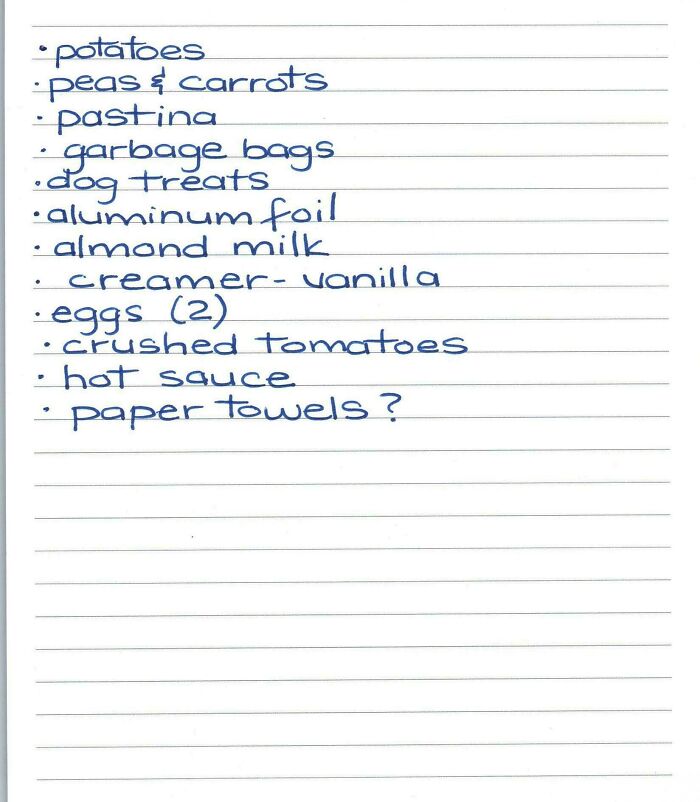 · potatoes
· peas & carrots
· pastina
· garbage bags
· dog treats
· aluminum foil
· almond milk
· creamer - vanilla
· eggs (2)
· crushed tomatoes
· hot sauce
· paper towels?